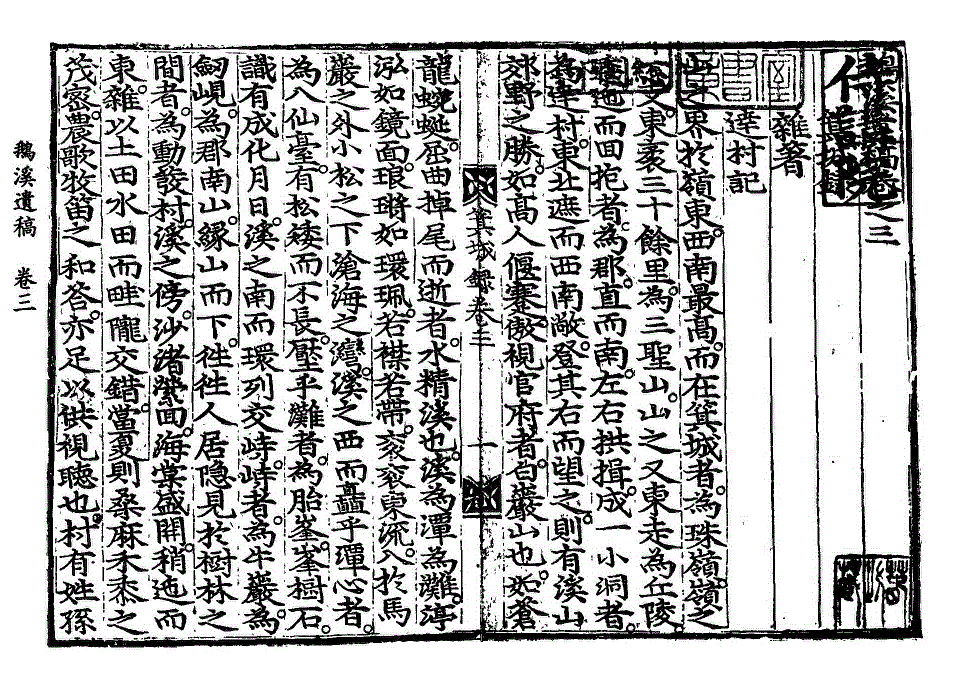 卷之三
雜著
達村記
界於嶺東西南最高而在箕城者為珠嶺嶺之
又東東袤三十餘里為三聖山山之又東走為丘陵
而回抱者為郡直而南左右拱揖成一小洞者
為達村東北遮而西南敞登其右而望之則有溪山
郊野之勝如高人偃蹇傲視官府者白巖山也如蒼
箕城錄卷之三
一
龍蜿蜒屈曲掉尾而逝者水精溪也溪為潭為灘渟
泓如鏡面琅瑯如環珮若襟若帶袞袞東流入於馬
巖之外小松之下滄海之灣溪之西而矗乎潭心者
為八仙臺有松矮而不長壓乎灘者為胎峯峯樹石
識有成化月日溪之南而環列交峙峙者為牛巖為
釰峴為郡南山緣山而下徃徃人居隐見於樹林之
間者為動發村溪之傍沙渚縈面海棠盛開稍迤而
東雜以土田水田而畦隴交錯當夏則桑麻禾黍之
茂密農歌牧笛之和答亦足以供視聽也村有姓孫
鵝溪遺稿 卷三